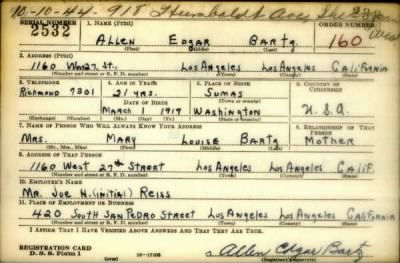 10-10-44 - 918 Humboldt Ave
SERIAL NUMBER 1. NAME (Print) ORDER NUMBER
2532 ALLEN EDGAR Bartz 160
(First) (Middle) (Last)
2. ADDRESS (Print)
1160 W. 27. ST. LOS ANGELES LOS ANGELES CALIFORNIA
(Number and street or R. F. D. number) (Town) (County) (State)
3. TELEPHONE 4. AGE IN YEARS 5. PLACE OF BIRTH 6. COUNTRY OF CITIZENSHIP
RICHMOND 7301 21 YRS. SUMAS
DATE OF BIRTH (Town or county)
MARCH 1 1919 WASHINGTON U.S.A.
(Exchange) (Number) (Mo.) (Day) (Yr.) (State or country)
7. NAME OF PERSON WHO WILL ALWAYS KNOW YOUR ADDRESS 8. RELATIONSHIP OF THAT PERSON
MRS. MARY LOUISE Bartz MOTHER
(Mr., Mrs., Miss) (First) (Middle) (Last)
9. ADDRESS OF THAT PERSON
1160 WEST 27th STREET LOS ANGELES LOS ANGELES CALIF.
(Number and street or R. F. D. number) (Town) (County) (State)
10. EMPLOYER'S NAME
MR. JOE N. (initial) REISS
11. PLACE OF EMPLOYMENT OR BUSINESS
420 SOUTH SAN PEDRO STREET LOS ANGELES LOS ANGELES CALIFORNIA
(Number and street or R. F. D. number) (Town) (County) (State)
I AFFIRM THAT I HAVE VERIFIED ABOVE ANSWERS AND THAT THEY ARE TRUE.
REGISTRATION CARD
D. S. S. Form 1 (over) Allen Edgar Bartz
(Registrant's signature)